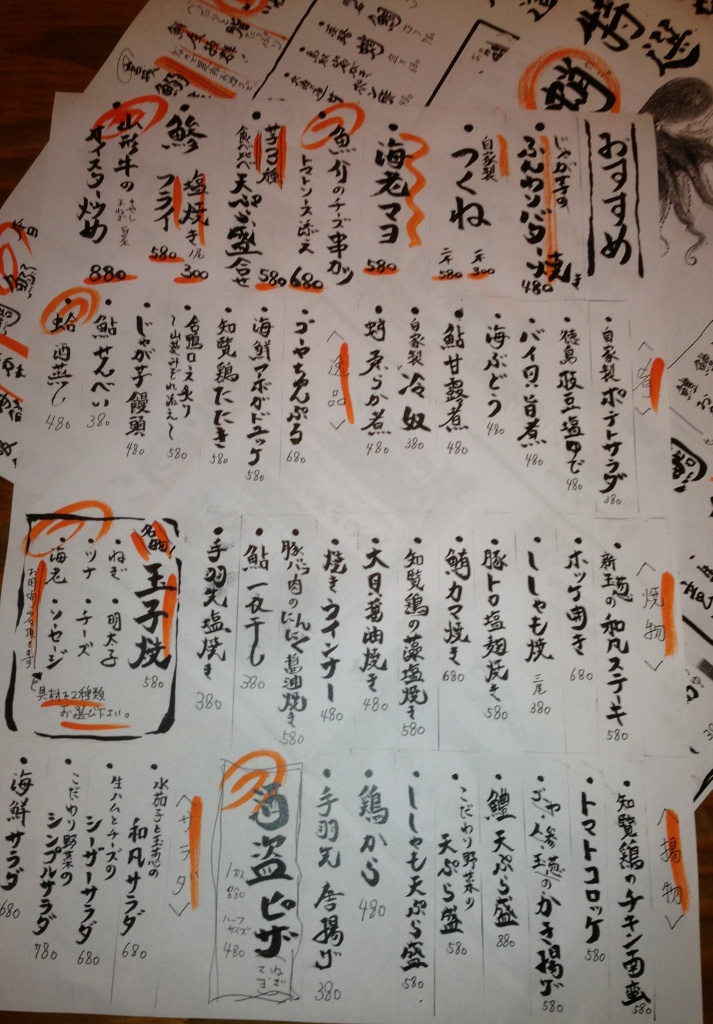 おすすめ
じゃが芋の
ふんわりバター焼き
480
自家製
つくね
一本 300
二本 580
海老マヨ
580
魚介のチーズ串カツ
トマトソース添え
680
芋3種
食べ比べ 天ぷら盛合せ
580
鯵 塩焼き 1尾 300
フライ 580
山形牛の
オイスター炒め
880
〈肴〉
自家製ポテトサラダ
380
徳島 枝豆塩ゆで
480
バイ貝 旨煮
480
海ぶどう
480
鮎甘露煮
480
自家製 冷奴
380
蛸柔らか煮
480
〈逸品〉
ゴーヤちゃんぷる
680
海鮮アボガドユッケ
580
知覧鶏たたき
580
合鴨ロース炙り
〜山葵みぞれ添え〜
580
じゃが芋饅頭
480
鮎せんべい
380
蛤 酒蒸し
480
〈焼物〉
新玉葱の和風ステーキ
580
ホッケ開き
680
ししゃも焼
三尾 380
豚トロ塩麹焼き
580
鮪カマ焼き
680
知覧鶏の藻塩焼き
580
大貝醤油焼き
480
焼きウインナー
480
豚バラ肉のにんにく醤油焼き
580
鮎一夜干し
380
手羽先塩焼き
380
名物!
玉子焼
580
・ねぎ ・明太子
・ツナ ・チーズ
・海老 ・ソーセージ
具材を2種類
お選び下さい。
〈揚物〉
知覧鶏のチキン南蛮
580
トマトコロッケ
580
ゴーヤ・人参・玉葱のかき揚げ
580
鱧 天ぷら盛
880
こだわり野菜の
天ぷら盛
580
ししゃも天ぷら盛
580
鶏から
480
手羽先 唐揚げ
380
酒盗ピザ
ハーフ
サイズ
480
〈サラダ〉
水茄子と玉葱の
和風サラダ
680
生ハムとチーズの
シーザーサラダ
680
こだわり野菜の
シンプルサラダ
780
海鮮サラダ
680
特選
蛸